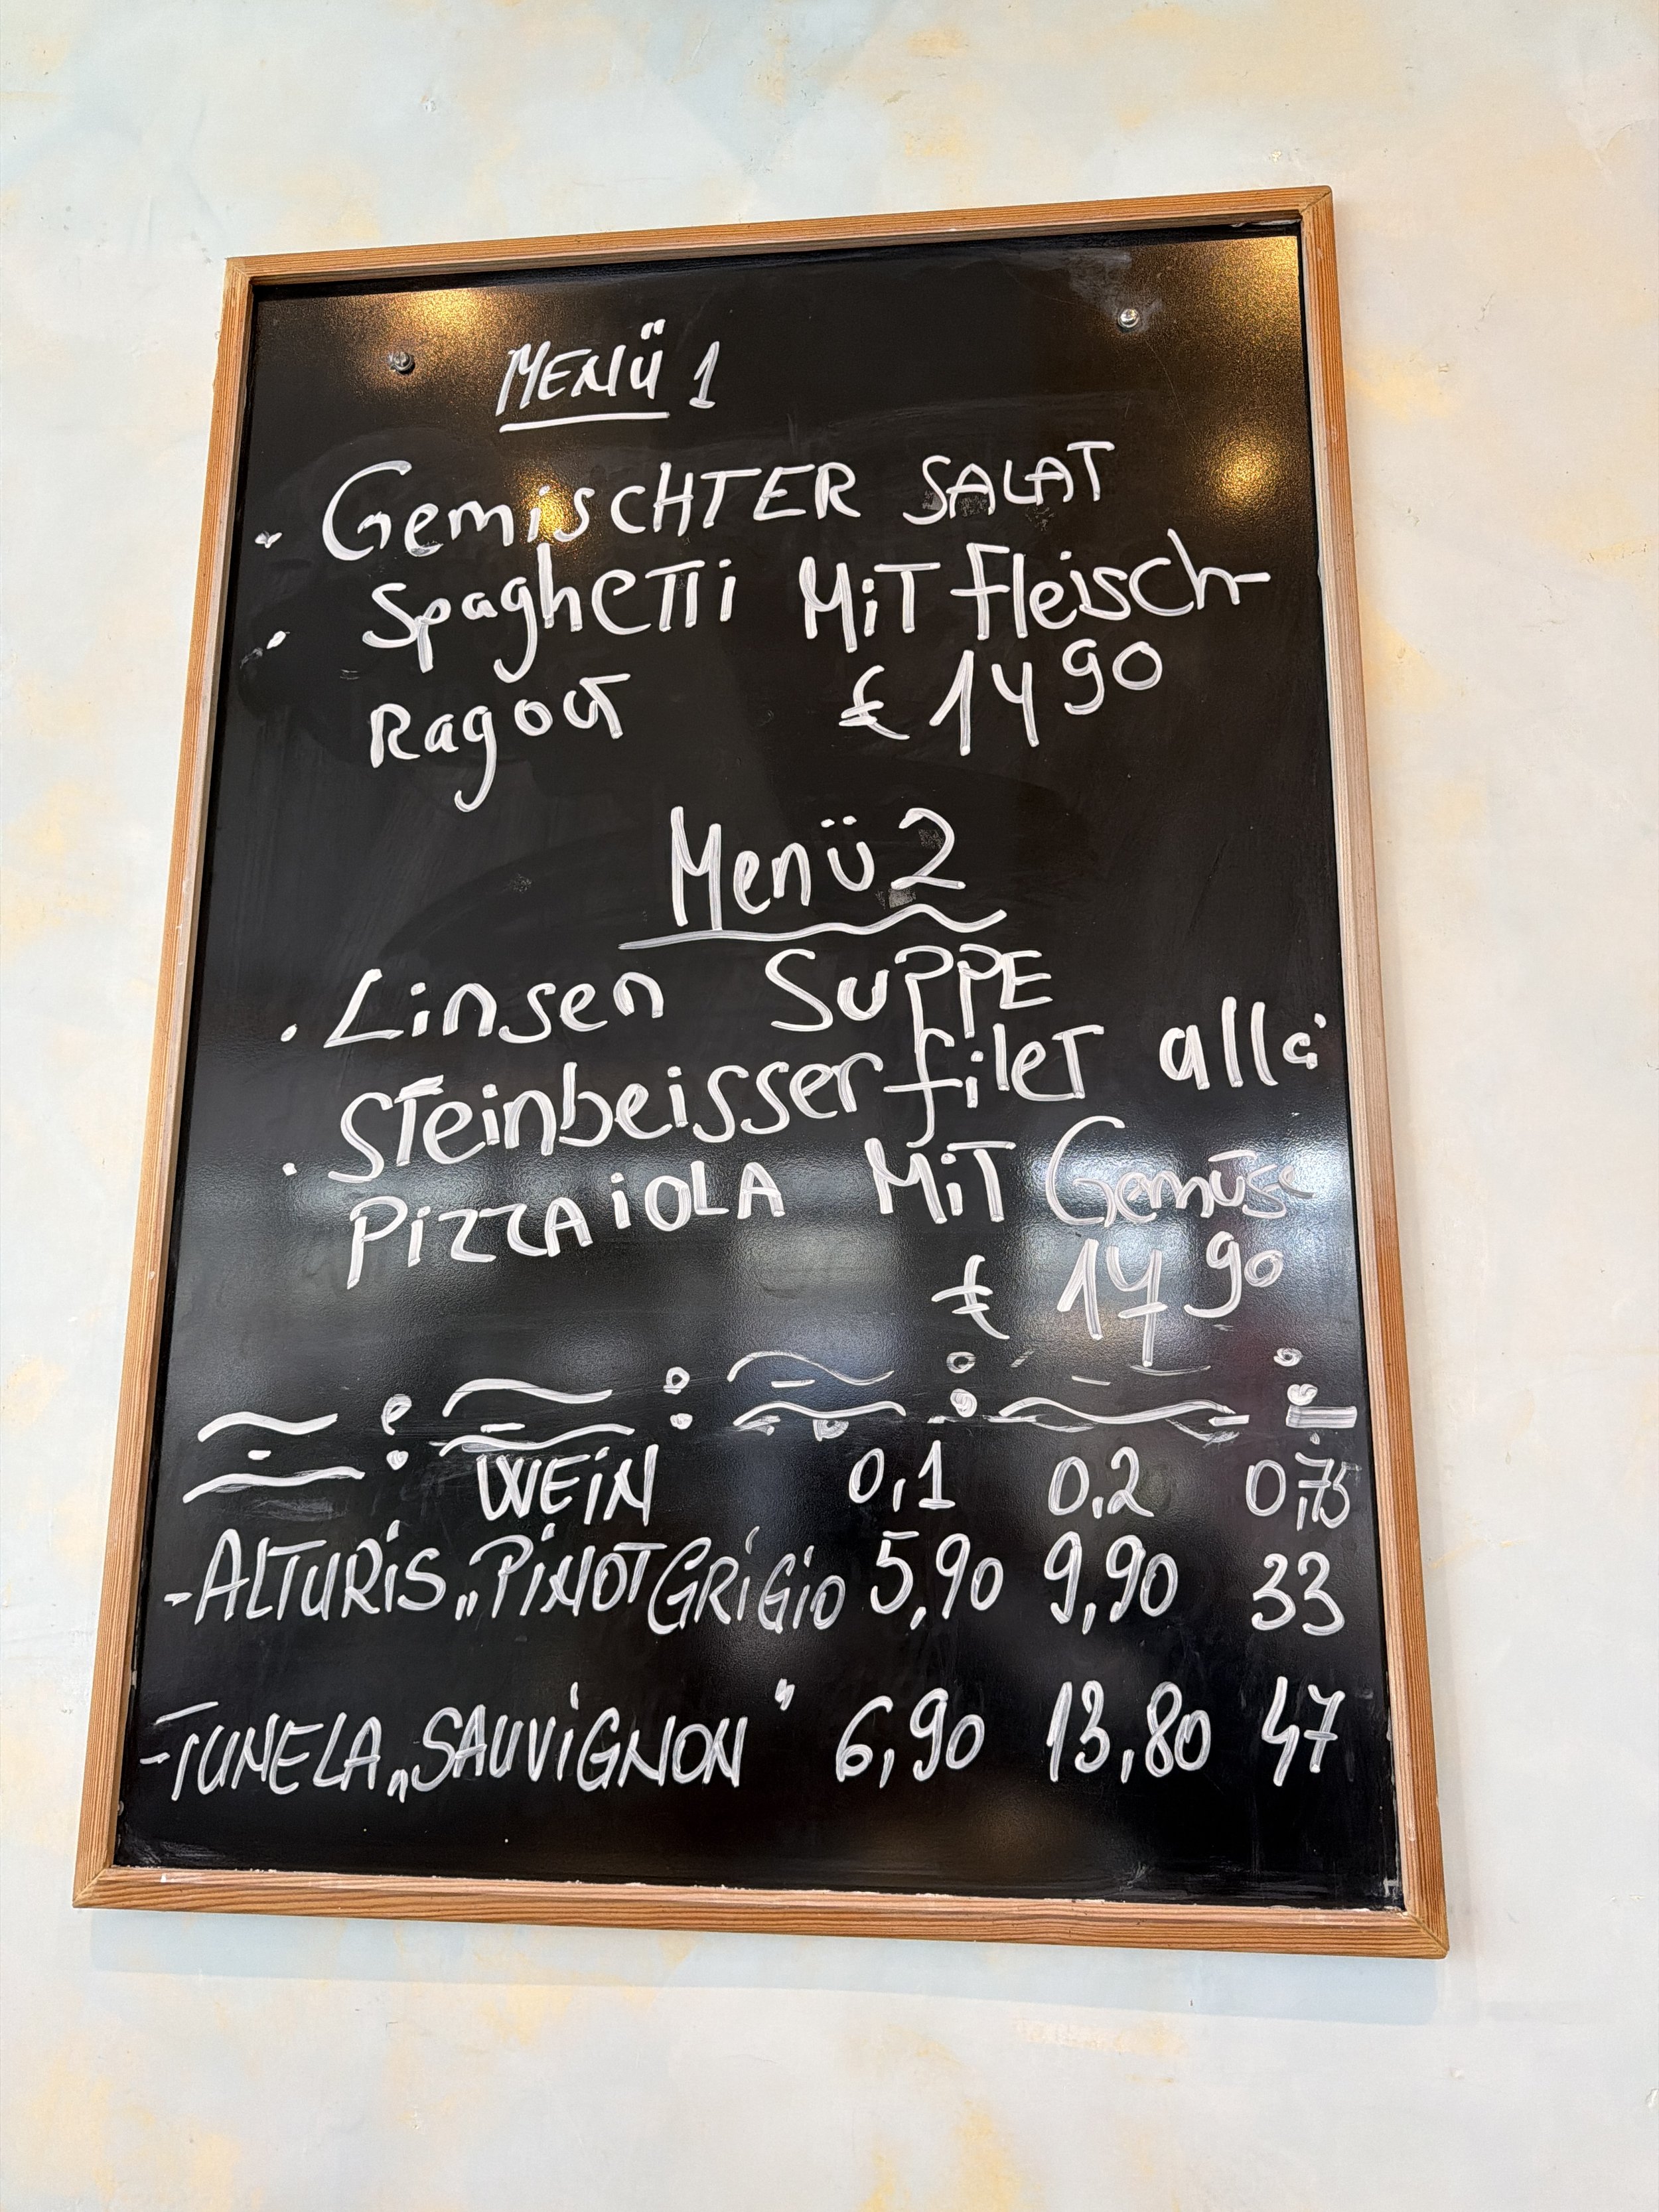 MENÜ 1
· GemiSCHTER SALAT
· SpagheTTi MiT fleisch-
RagouT € 14 90
Menü 2
· Linsen SuPPE
· STeinbeisserfileT alla
PizzAiOLA MiT Gemüse
€ 17 90
WEiN 0,1 0,2 0,75
- ALTURiS „PiNOT GRiGiO 5,90 9,90 33
- TUNELA „SAUViGNON" 6,90 13,80 47